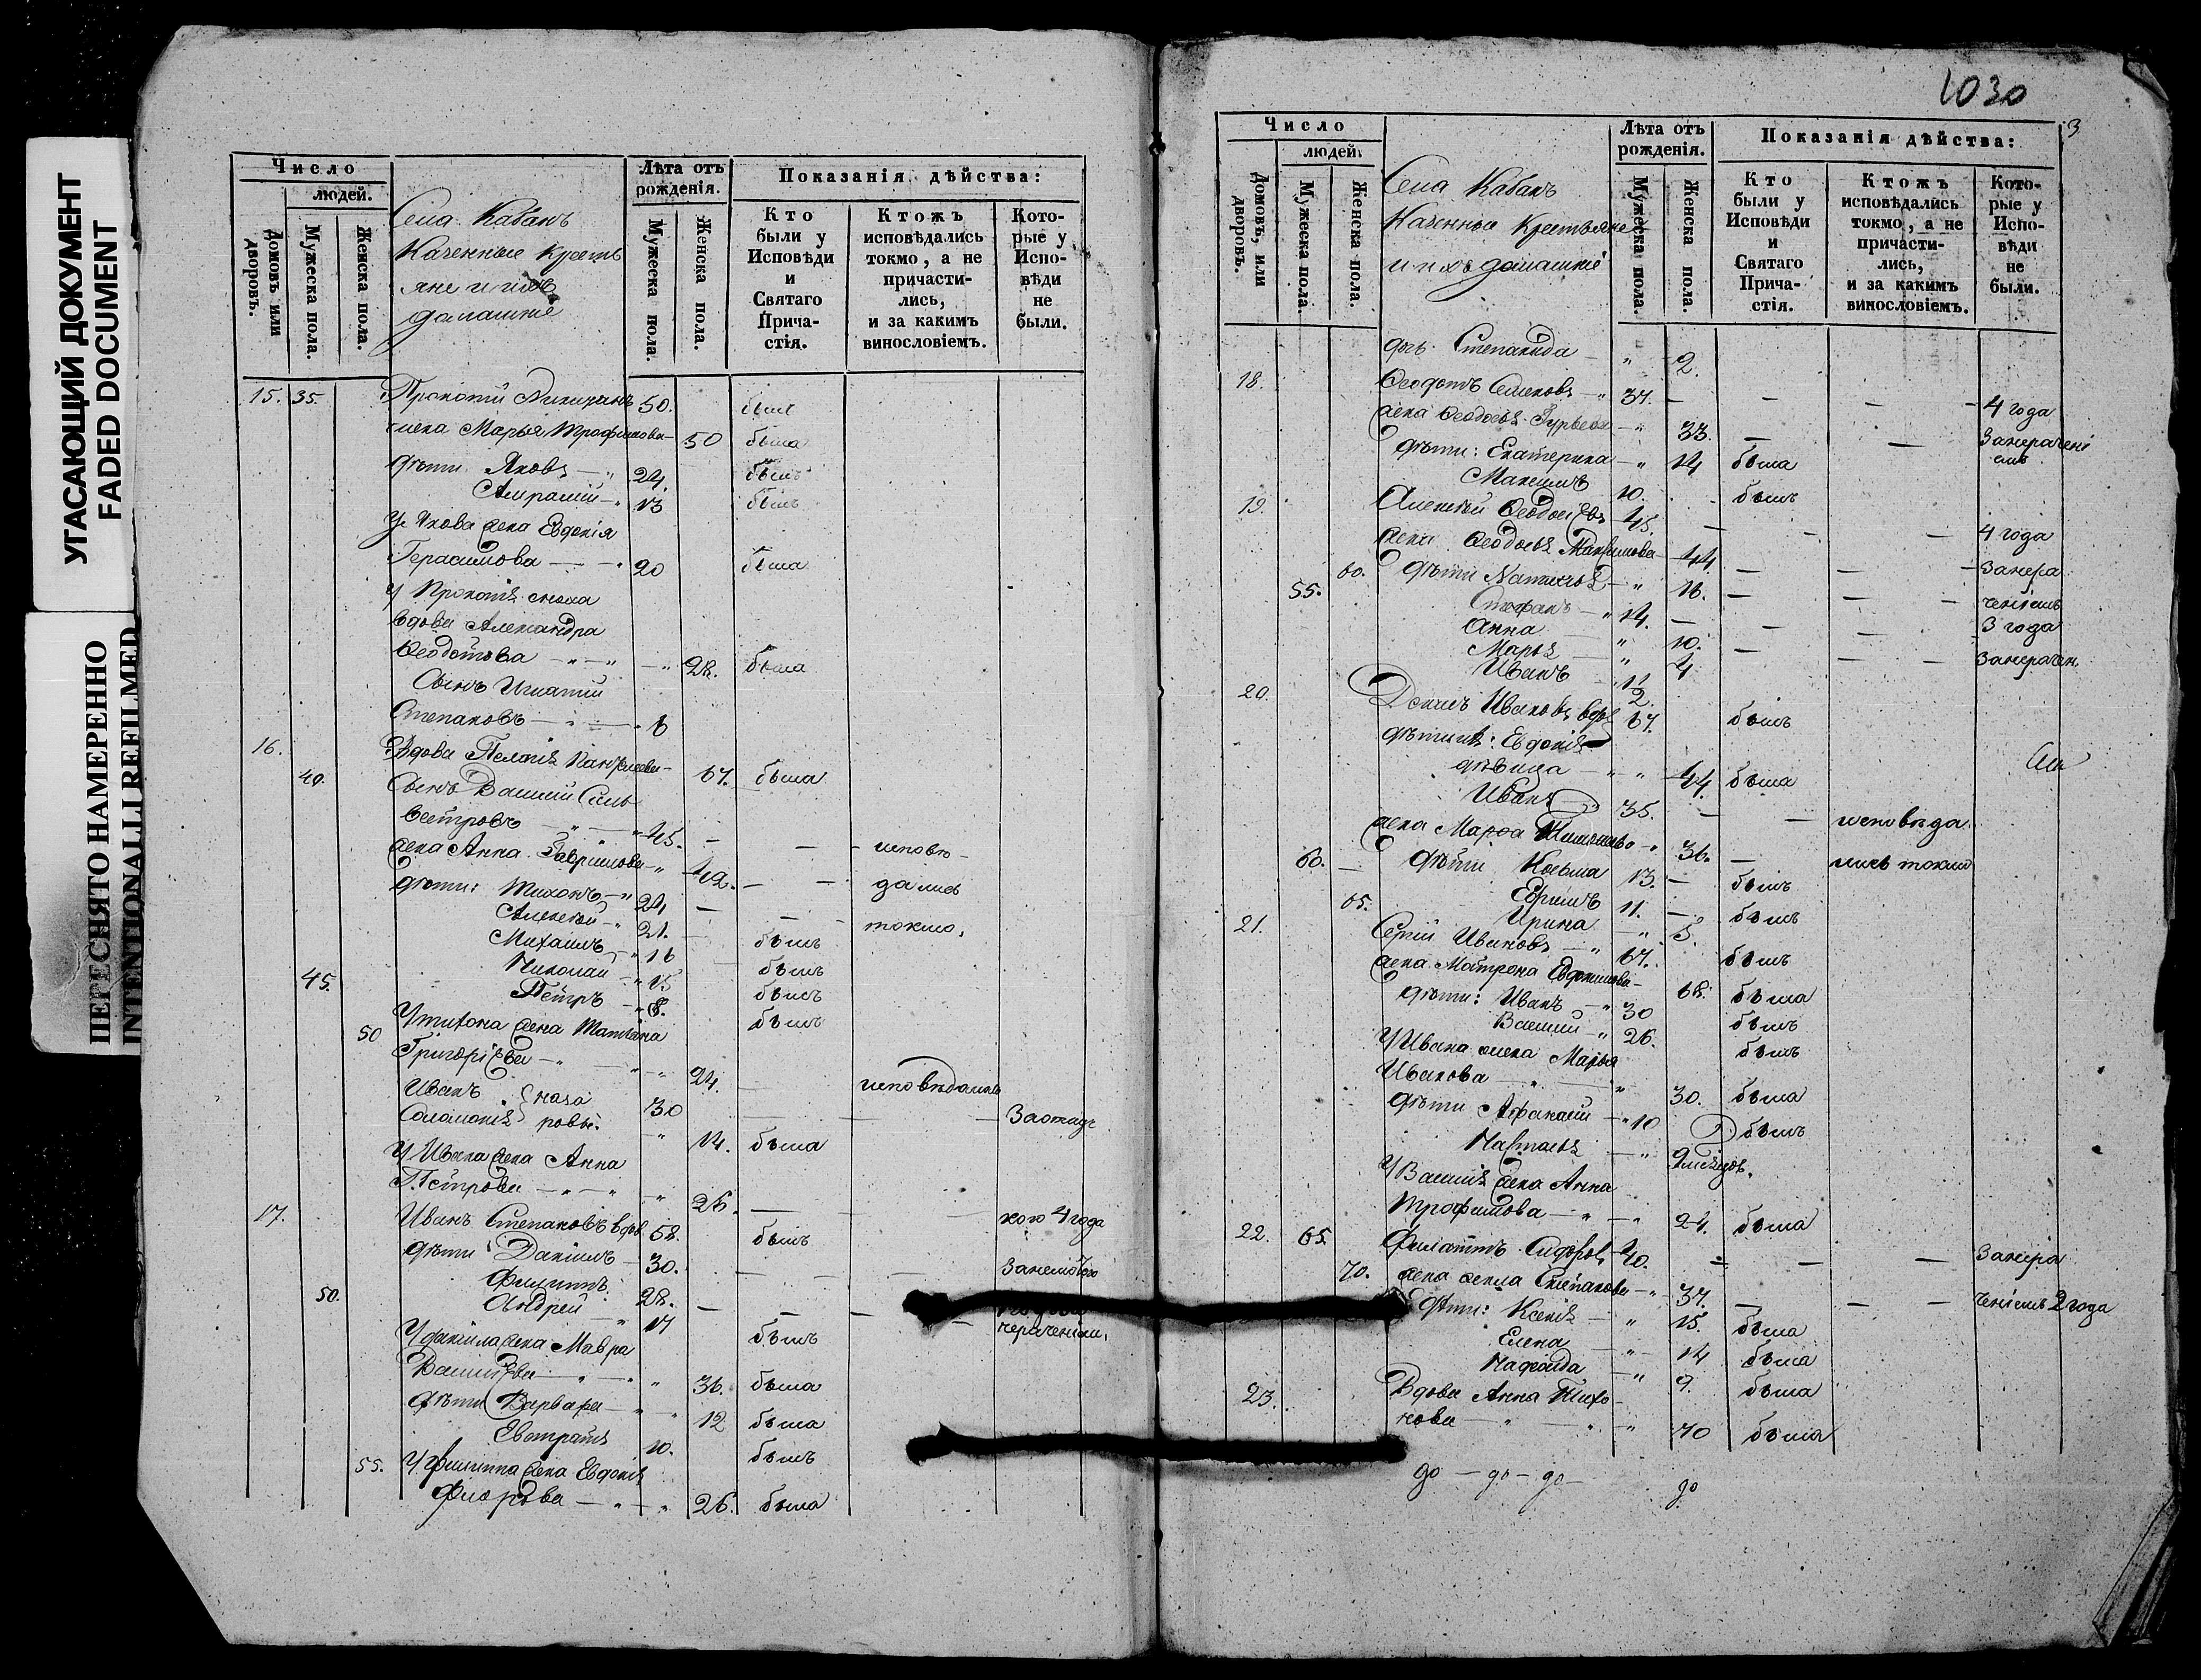 УГАСАЮЩИЙ ДОКУМЕНТ
FADED DOCUMENT
ПЕРЕСНЯТО НАМЕРЕННО
INTENTIONALLI REFILMED
Число
людей.
Домовъ или дворовъ.
Мужеска пола.
Женска пола.
Села Кабанъ
Казенные крестъ
яне и ихъ
домашніе
Лѣта отъ рожденія.
Мужеска пола.
Женска пола.
Показанія дѣйства:
Кто были у Исповѣди и Святаго Прича-стія.
Ктожъ исповѣдались токмо, а не причасти-лись, и за какимъ винословіемъ.
Кото-рые у Испо-вѣди не были.
15. 35. Прокопій 50. былъ
жена Марья Трофимова 50 была
дѣти: Яковъ 24. былъ
13 былъ
У Якова жена Евдокія
Герасимова 20 была
У Прокопія сноха
вдова Александра
Ѳеодотова 28. была
Сынъ Игнатій
Степановъ 6
16. Вдова Пелагія 67. была
40. Сынъ Василій Силь
вестровъ 45. — —
жена Анна Гаврилова 42. — — исповѣ
дѣти: Тихонъ 24 — дались
Алексѣй 21. — токмо,
Михаилъ 16 былъ
Николай 15 былъ
45. Петръ 8. былъ
У Тихона жена Татьяна былъ
50 Григоріева 24. — исповѣдалась
Иванъ 30 — — — За отлуч
Соломонія ровы 14. была
У Ивана жена Анна
Петрова 26. — — —
17. Иванъ Степановъ вдов. 58. былъ кою 4 года
дѣти: Даніилъ 30. — — —
Филиппъ 28. — — —
50. Андрей 17 былъ нераченіем.
У Даніила жена Мавра
Васильева 36. была
дѣти: Варвара 12 была
Евстратій 10. былъ
55. У Филиппа жена Евдокія
Фиорова 26. была
1030
3
Число
людей.
Домовъ, или дворовъ.
Мужеска пола.
Женска пола.
Села Кабанъ
Казенные Крестьяне
и ихъ домашніе
Лѣта отъ рожденія.
Мужеска пола.
Женска пола.
Показанія дѣйства:
Кто были у Исповѣди и Святаго Прича-стія.
Ктожъ исповѣдались токмо, а не причасти-лись, и за какимъ винословіемъ.
Кото-рые у Испо-вѣди не были.
дочь Степанида 2.
18. Ѳеодотъ Семеновъ 37. — — — 4 года
жена Ѳеодосья Гурьева 33. — — Занерачені
дѣти: Екатерина 14 была емъ
Максимъ 10. былъ
19. Алексѣй Ѳеодосіевъ 45. — — — 4 года
жена Ѳеодосья Максимова 44. — — — Занера
60. дѣти Наталья 16. — — — ченіемъ
55. Стефанъ 14. — — — 3 года
Анна 10. — — — Занерачен
Марья 4
Иванъ 2.
20. Денисъ Ивановъ вдов. 67. былъ
дѣти: Евдокія
дѣвица 44. была
Иванъ 35. — — исповѣда
жена Марѳа 36. — лись токмо
60. дѣти Козьма 13. — былъ
Ефимъ 11. — былъ
65. Ирина 5.
21. Сергій Ивановъ 67. былъ
жена Матрона Евдокимова 68. была
дѣти: Иванъ 30 былъ
Василій 26. былъ
У Ивана жена Марья
Иванова 30. была
дѣти Афанасій 10 былъ
Наталья 9 мѣсяцов.
У Василія жена Анна
Трофимова 24. была
22. 65. Филаттъ Сидоровъ 40. — — — Занера
70. жена Степанова 37. — — — ченіемъ 2 года
дѣти: Ксенія 15. была
Елена 14 была
9. была
23. Вдова Анна Тихо
нова 70 была
до — до — до — до